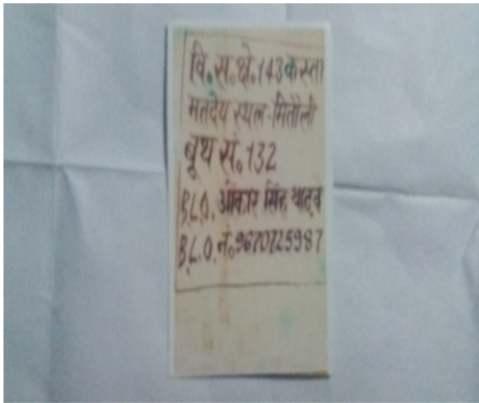 वि॰स॰क्षे॰143कस्ता
मतदेय स्थल-मितौली
बूथ सं॰132
B.L.O. ओंकार सिंह यादव
B.L.O. नं॰9670725987